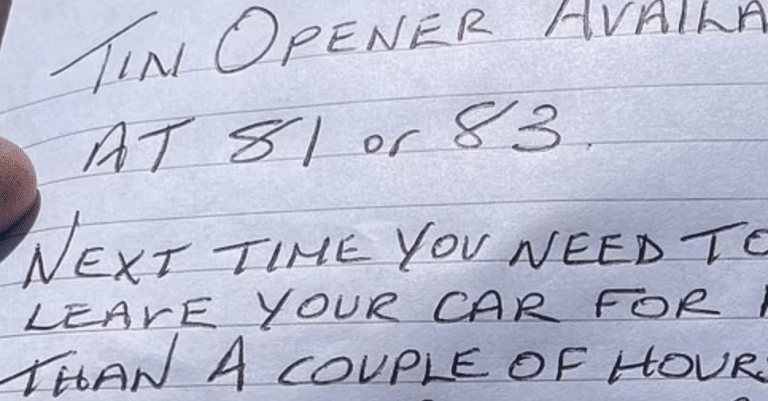 TIN OPENER AVAILA
AT 81 or 83.
NEXT TIME YOU NEED TO
LEAVE YOUR CAR FOR
THAN A COUPLE OF HOURS